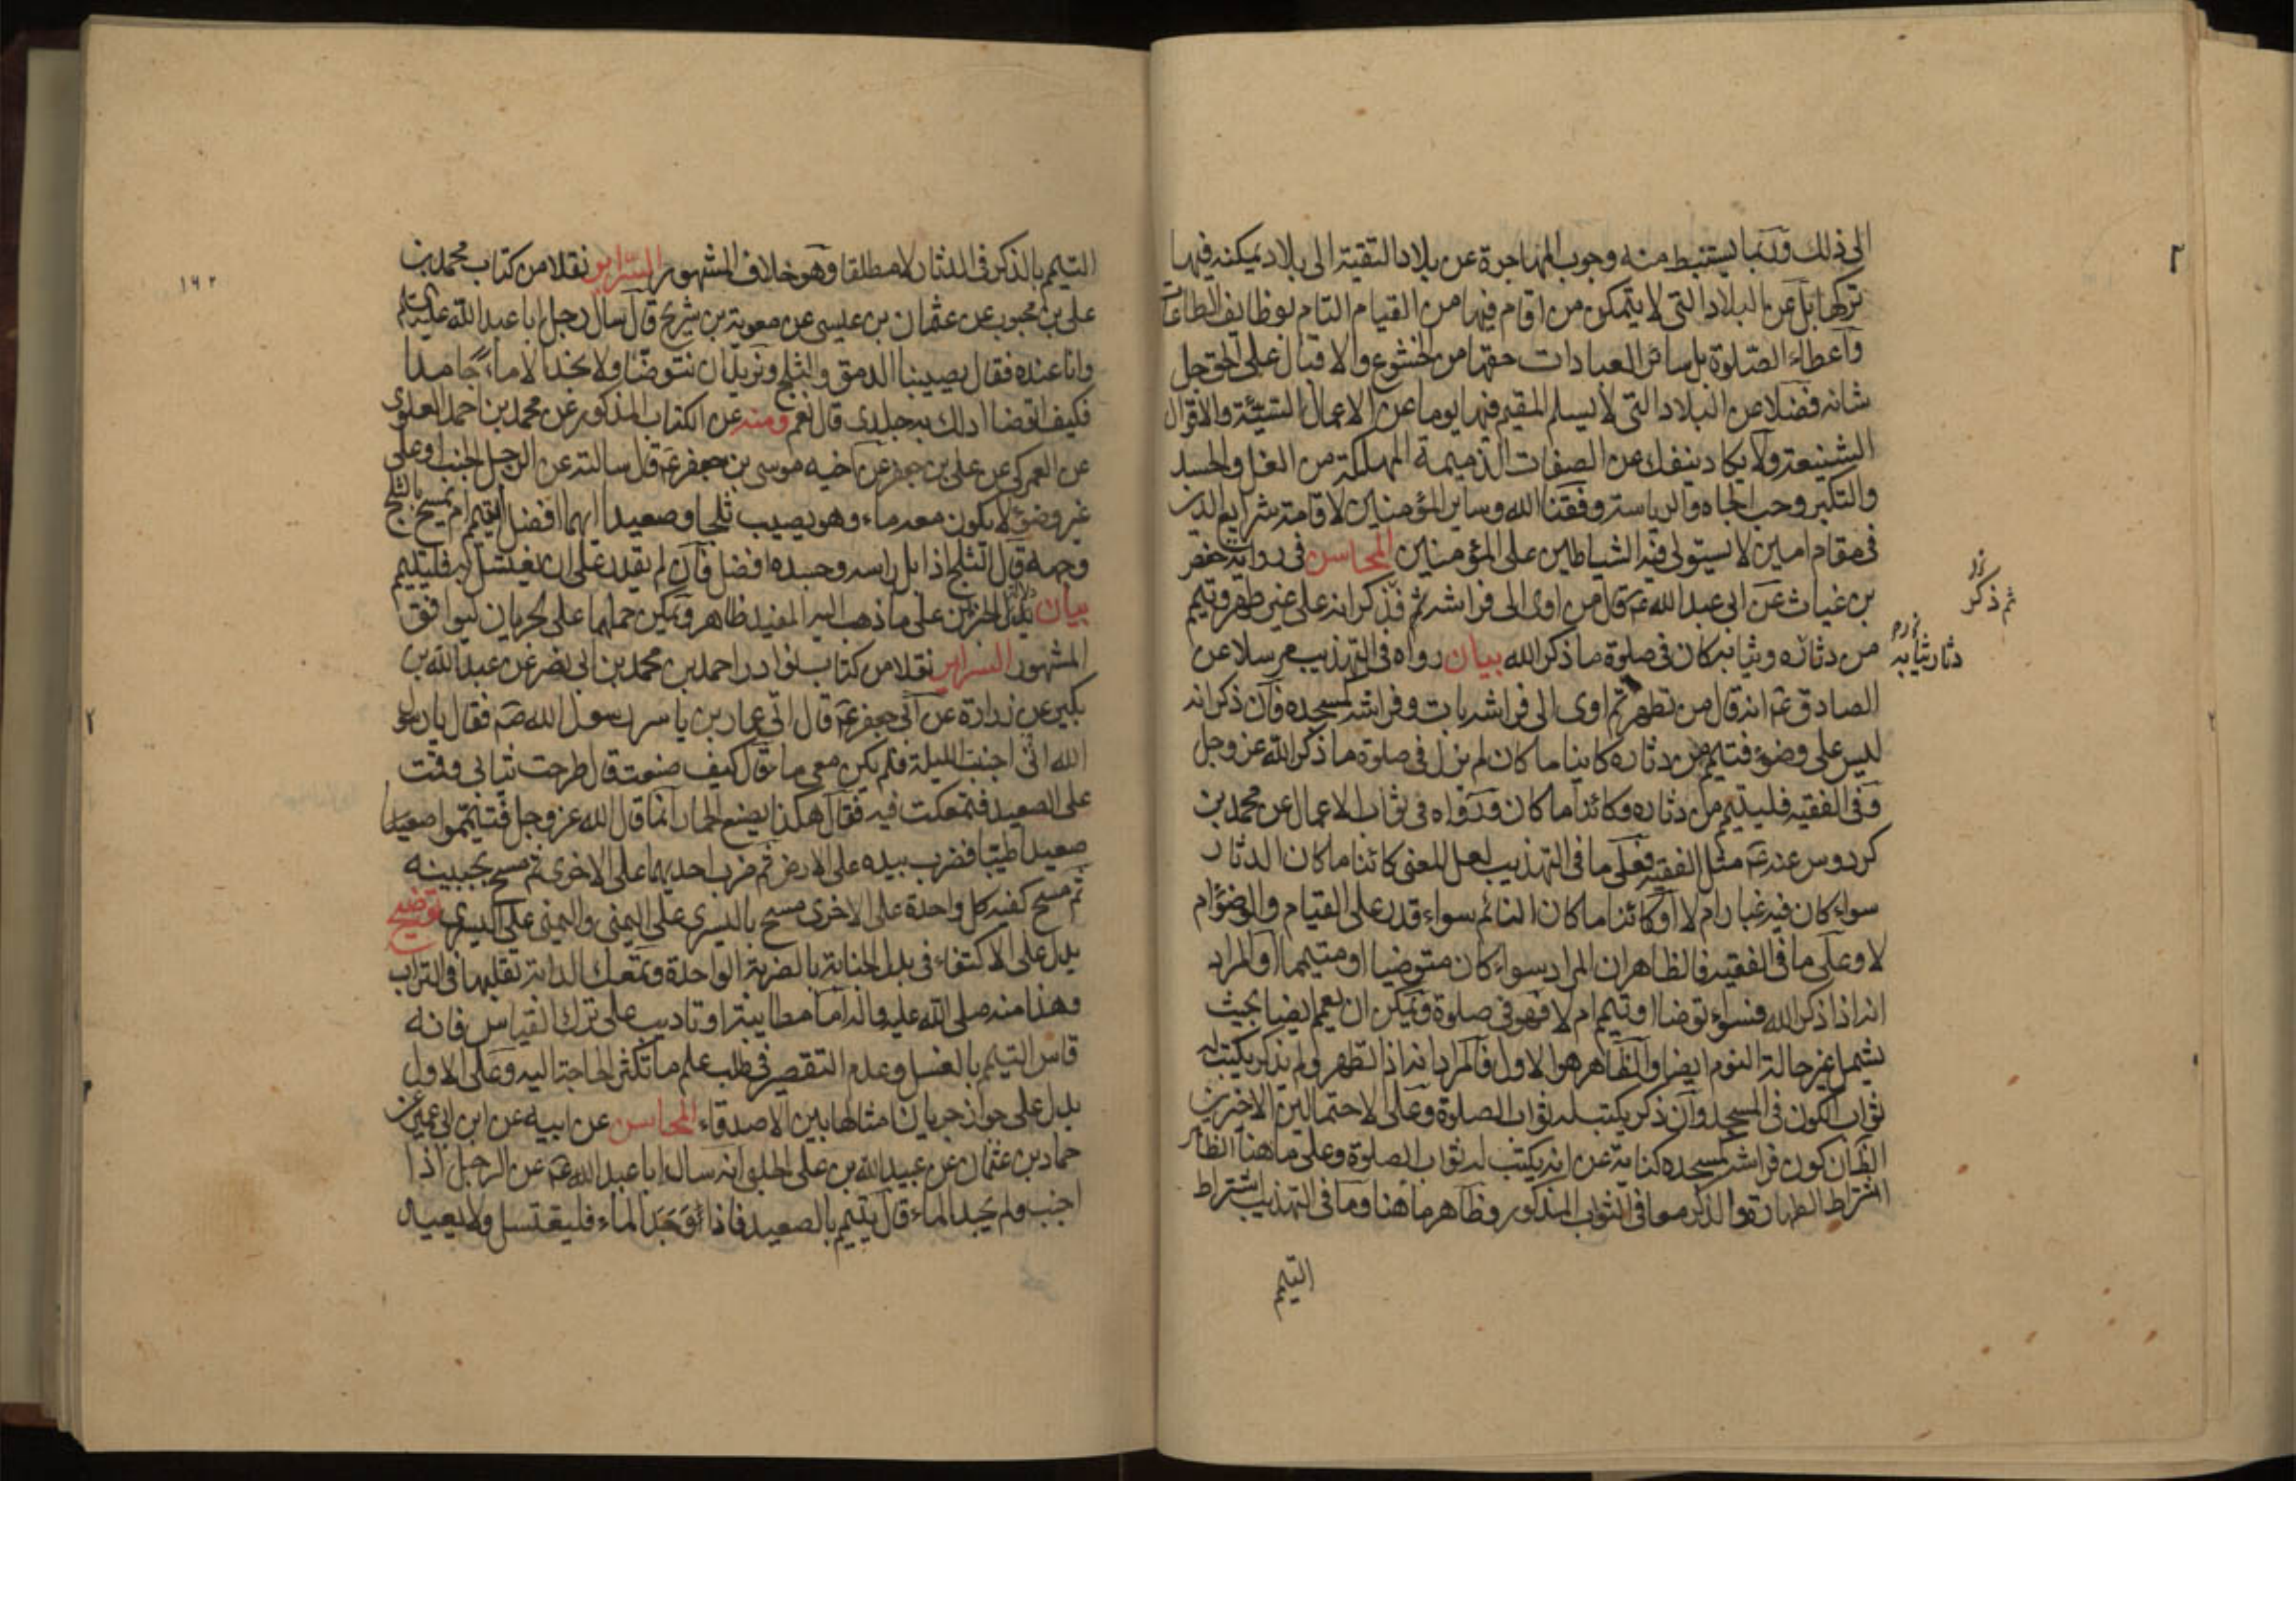 الى ذلك وربما يستنبط منه وجوب المهاجرة عن بلاد التقية الى بلاد يمكنه فيها
تركها بل عن البلاد التى لا يتمكن من اقام فيها من القيام التام بوظايف الطاعات
واعطاء الصلوة بل سائر العبادات حقها من الخشوع والاقبال على الحق جل
شانه فضلا عن البلاد التى لا يسلم المقيم فيها يوما عن الاعمال السيئة والاقوال
الشنيعة ولا يكاد ينفك عن الصفات الذميمة المهلكة من الغل والحسد
والتكبر وحب الجاه والرياسة وفقنا الله وساير المؤمنين لاقامة شرايع الدين
فى مقام امين لا يستولى فيه الشياطين على المؤمنين المحاسن فى رواية حفص
بن غياث عن ابى عبد الله عم قال من اوى الى فراشه ثم فذكر انه على غير طهر وتيمم
من دثاره وثيابه كان فى صلوة ما ذكر الله بيان رواه فى التهذيب مرسلا عن
الصادق عم انه قال من تطهر ثم اوى الى فراشه بات وفراشه كمسجده فان ذكر انه
ليس على وضوء فتيمم من دثاره كاينا ما كان لم يزل فى صلوة ما ذكر الله عز وجل
وفى الفقيه فليتيمم من دثاره وكائنا ما كان ورواه فى ثواب الاعمال عن محمد بن
كردوس عنه عم مثل الفقيه فعلى ما فى التهذيب لعل المعنى كائنا ما كان الدثار
سواء كان فيه غبار ام لا او كائنا ما كان النائم سواء قدر على القيام والوضوء ام
لا وعلى ما فى الفقيه فالظاهر ان المراد سواء كان متوضيا او متيمما او المراد
انه اذا ذكر الله فسواء توضا او تيمم ام لا فهو فى صلوة ويمكن ان يعمم ايضا بحيث
يشمل غير حالة النوم ايضا والظاهر هو الاول فالمراد انه اذا تطهر ولم يذكر يكتب له
ثواب الكون فى المسجد وان ذكر يكتب له ثواب الصلوة وعلى الاحتمالين الاخيرين
الظ ان كون فراشه كمسجده كناية عن انه يكتب له ثواب الصلوة وعلى ما هنا الظاهر
اشتراط الطهارة والذكر معا فى الثواب المذكور وظاهر ما هنا وما فى التهذيب اشتراط
التيمم
ثم ذكر
دثار ثيابه
١٦٢
التيمم بالذكر فى الدثار لا مطلقا وهو خلاف المشهور السراير نقلا من كتاب محمد بن
على بن محبوب عن عثمان بن عيسى عن معوية بن شريح قال سال رجل ابا عبد الله عليه السلام
وانا عنده فقال يصيبنا الدمق والثلج ونريد ان نتوضا ولا نجد الا ماء جامدا
فكيف اتوضا ادلك به جلدى قال نعم ومنه عن الكتاب المذكور عن محمد بن احمد العلوى
عن العمركى عن على بن جعفر عن اخيه موسى بن جعفر عم قال سالته عن الرجل الجنب او على
غير وضوء لا يكون معه ماء وهو يصيب ثلجا وصعيدا ايهما افضل ايتيمم ام يمسح بالثلج
وجهه قال الثلج اذا بل راسه وجسده افضل فان لم يقدر على ان يغتسل به فليتيمم
بيان دلالة الخبرين على ما ذهب اليه المفيد ظاهر ويمكن حملهما على الجريان ليوافق
المشهور السراير نقلا من كتاب نوادر احمد بن محمد بن ابى نصر عن عبد الله بن
بكير عن زرارة عن ابى جعفر عم قال اتى عمار بن ياسر رسول الله صم فقال يا رسول
الله انى اجنبت الليلة فلم يكن معى ماء قال كيف صنعت قال طرحت ثيابى وقمت
على الصعيد فتمعكت فيه فقال هكذا يصنع الحمار انما قال الله عز وجل فتيمموا صعيدا
صعيدا طيبا فضرب بيده على الارض ثم ضرب احديهما على الاخرى ثم مسح بجبينه
ثم مسح كفيه كل واحدة على الاخرى مسح باليسرى على اليمنى واليمنى على اليسرى توضيح
يدل على الاكتفاء فى بدل الجنابة بالضربة الواحدة وتمعك الدابة تقلبها فى التراب
وهذا منه صلى الله عليه واله اما مطايبة او تاديب على ترك القياس فانه
قاس التيمم بالغسل وعدم التقصير فى طلب علم ما تكثر الحاجة اليه وعلى الاول
يدل على جواز جريان امثالها بين الاصدقاء المحاسن عن ابيه عن ابن ابى عمير عن
حماد بن عثمان عن عبيد الله بن على الحلبى انه سال ابا عبد الله عم عن الرجل اذا
اجنب ولم يجد الماء قال يتيمم بالصعيد فاذا وجد الماء فليغتسل ولا يعيد